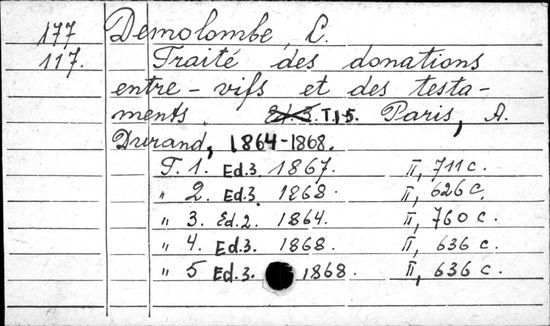 177 Demolombe, C.
117. Traité des donations
entre-vifs et des testa-
ments. Ed.3. T.1-5. Paris, A.
Durand, 1864-1868.
T. 1. Ed.3. 1867. II, 711 c.
" 2. Ed.3. 1868. II, 626 c.
" 3. Ed.2. 1864. II, 760 c.
" 4. Ed.3. 1868. II, 636 c.
" 5 Ed.3. 1868. II, 636 c.